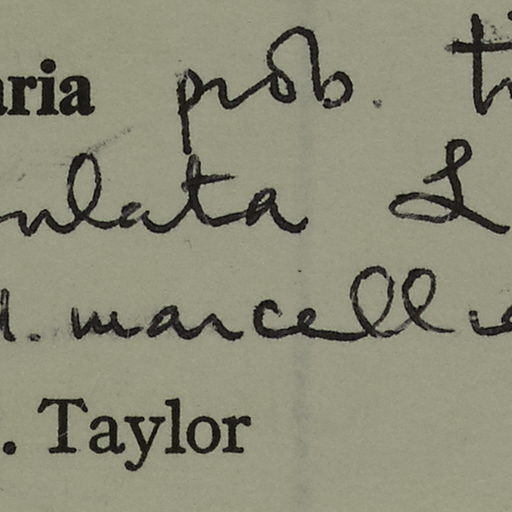 aria prob. ti
nulata L
d. marcellie
. Taylor